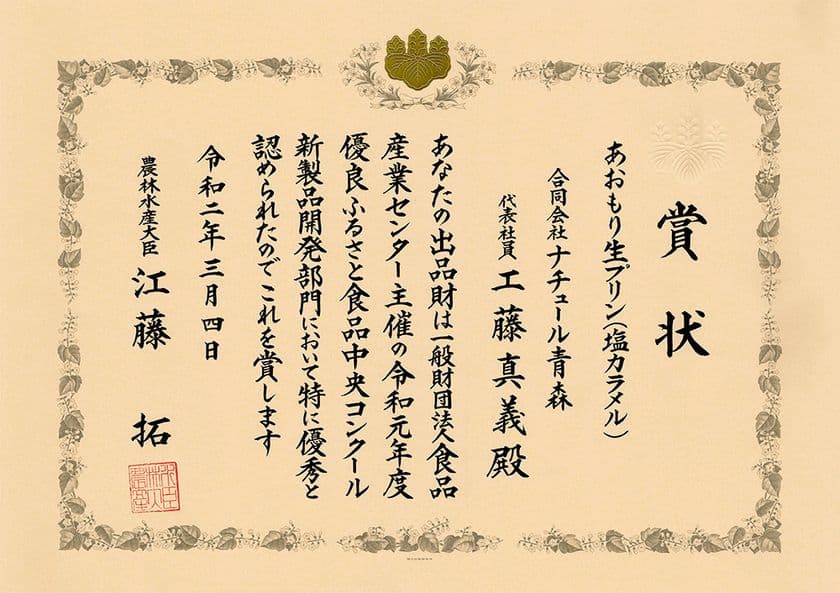 賞状
あおもり生プリン(塩カラメル)
合同会社ナチュール青森
代表社員 工藤真義殿
あなたの出品財は一般財団法人食品
産業センター主催の令和元年度
優良ふるさと食品中央コンクール
新製品開発部門において特に優秀と
認められたのでこれを賞します
令和二年三月四日
農林水産大臣 江藤 拓